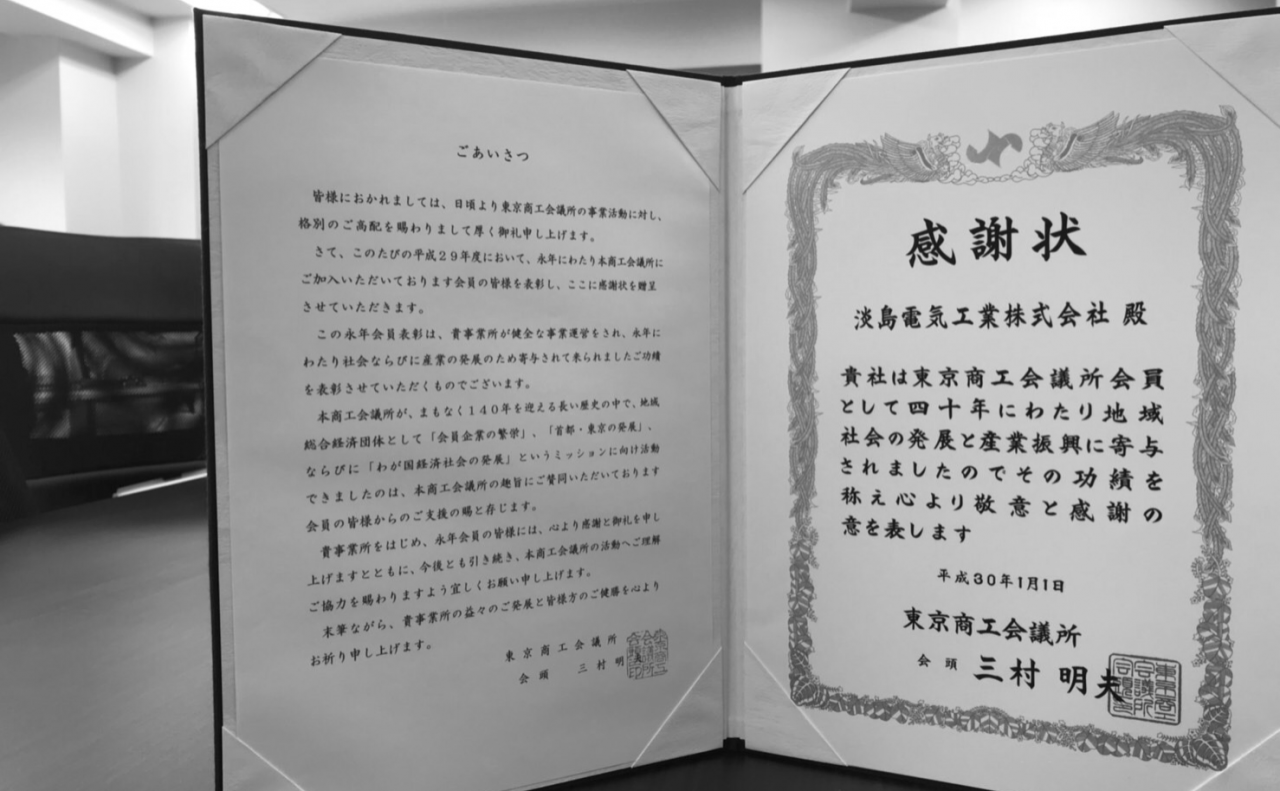 ごあいさつ
皆様におかれましては、日頃より東京商工会議所の事業活動に対し、
格別のご高配を賜わりまして厚く御礼申し上げます。
さて、このたびの平成29年度において、永年にわたり本商工会議所に
ご加入いただいております会員の皆様を表彰し、ここに感謝状を贈呈
させていただきます。
この永年会員表彰は、貴事業所が健全な事業運営をされ、永年に
わたり社会ならびに産業の発展のため寄与されて来られましたご功績
を表彰させていただくものでございます。
本商工会議所が、まもなく140年を迎える長い歴史の中で、地域
総合経済団体として「会員企業の繁栄」、「首都・東京の発展」、
ならびに「わが国経済社会の発展」というミッションに向け活動
できましたのは、本商工会議所の趣旨にご賛同いただいております
会員の皆様からのご支援の賜と存じます。
貴事業所をはじめ、永年会員の皆様には、心より感謝と御礼を申し
上げますとともに、今後とも引き続き、本商工会議所の活動へご理解
ご協力を賜わりますよう宜しくお願い申し上げます。
末筆ながら、貴事業所の益々のご発展と皆様方のご健勝を心より
お祈り申し上げます。
東京商工会議所
会頭 三村明夫
感謝状
淡島電気工業株式会社 殿
貴社は東京商工会議所会員
として四十年にわたり地域
社会の発展と産業振興に寄与
されましたのでその功績を
称え心より敬意と感謝の
意を表します
平成30年1月1日
東京商工会議所
会頭 三村明夫